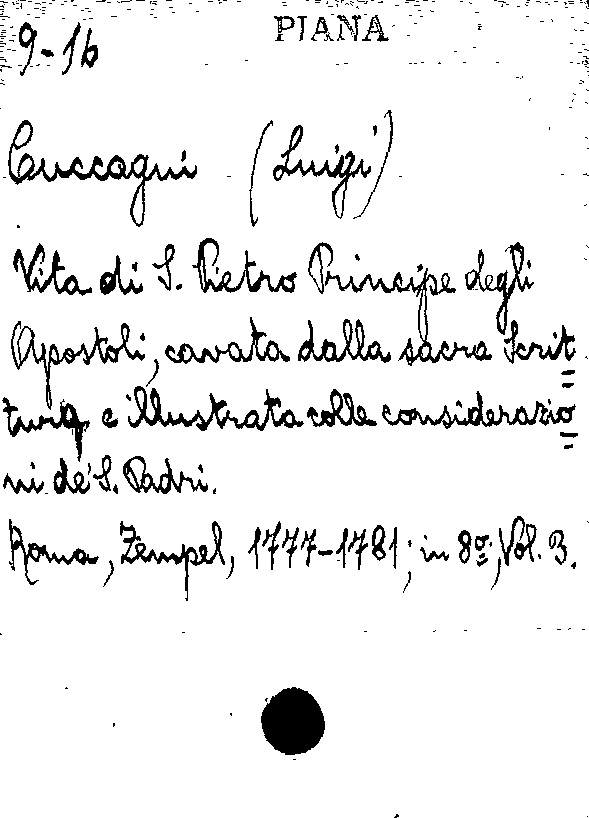 PIANA
9-16
Cuccagni (Luigi)
Vita di S. Pietro Principe degli
Apostoli, cavata dalla sacra Scrit=
tura e illustrata colle considerazio=
ni de' S. Padri.
Roma, Zempel, 1777-1781; in 8º; Vol. 3.